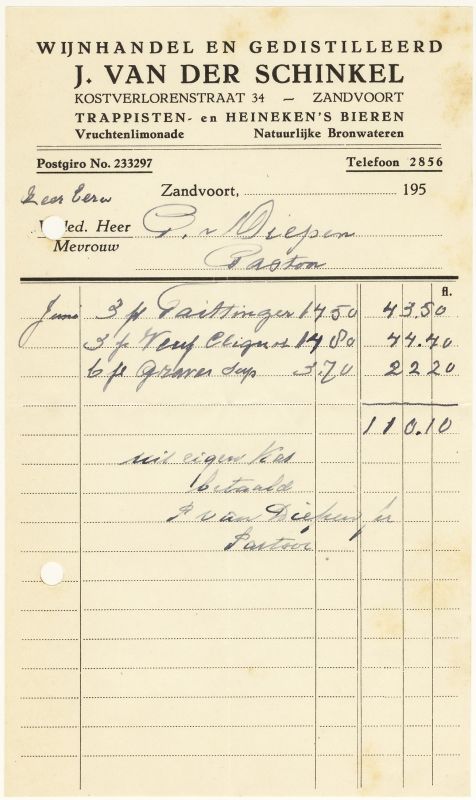 WIJNHANDEL EN GEDISTILLEERD
J. VAN DER SCHINKEL
KOSTVERLORENSTRAAT 34 — ZANDVOORT
TRAPPISTEN- en HEINEKEN'S BIEREN
Vruchtenlimonade Natuurlijke Bronwateren
Postgiro No. 233297 Telefoon 2856
Zeer Eerw Zandvoort, 195
Heer P. v Diepen
Mevrouw Pastoor
fl.
Juni 3 fl Taittinger 14.50 43.50
3 fl Veuf Cliquot 14.80 44.40
6 fl Graves Sup 3.70 22.20
110.10
uit eigen Kas
betaald
P van Diepen, pr
Pastoor